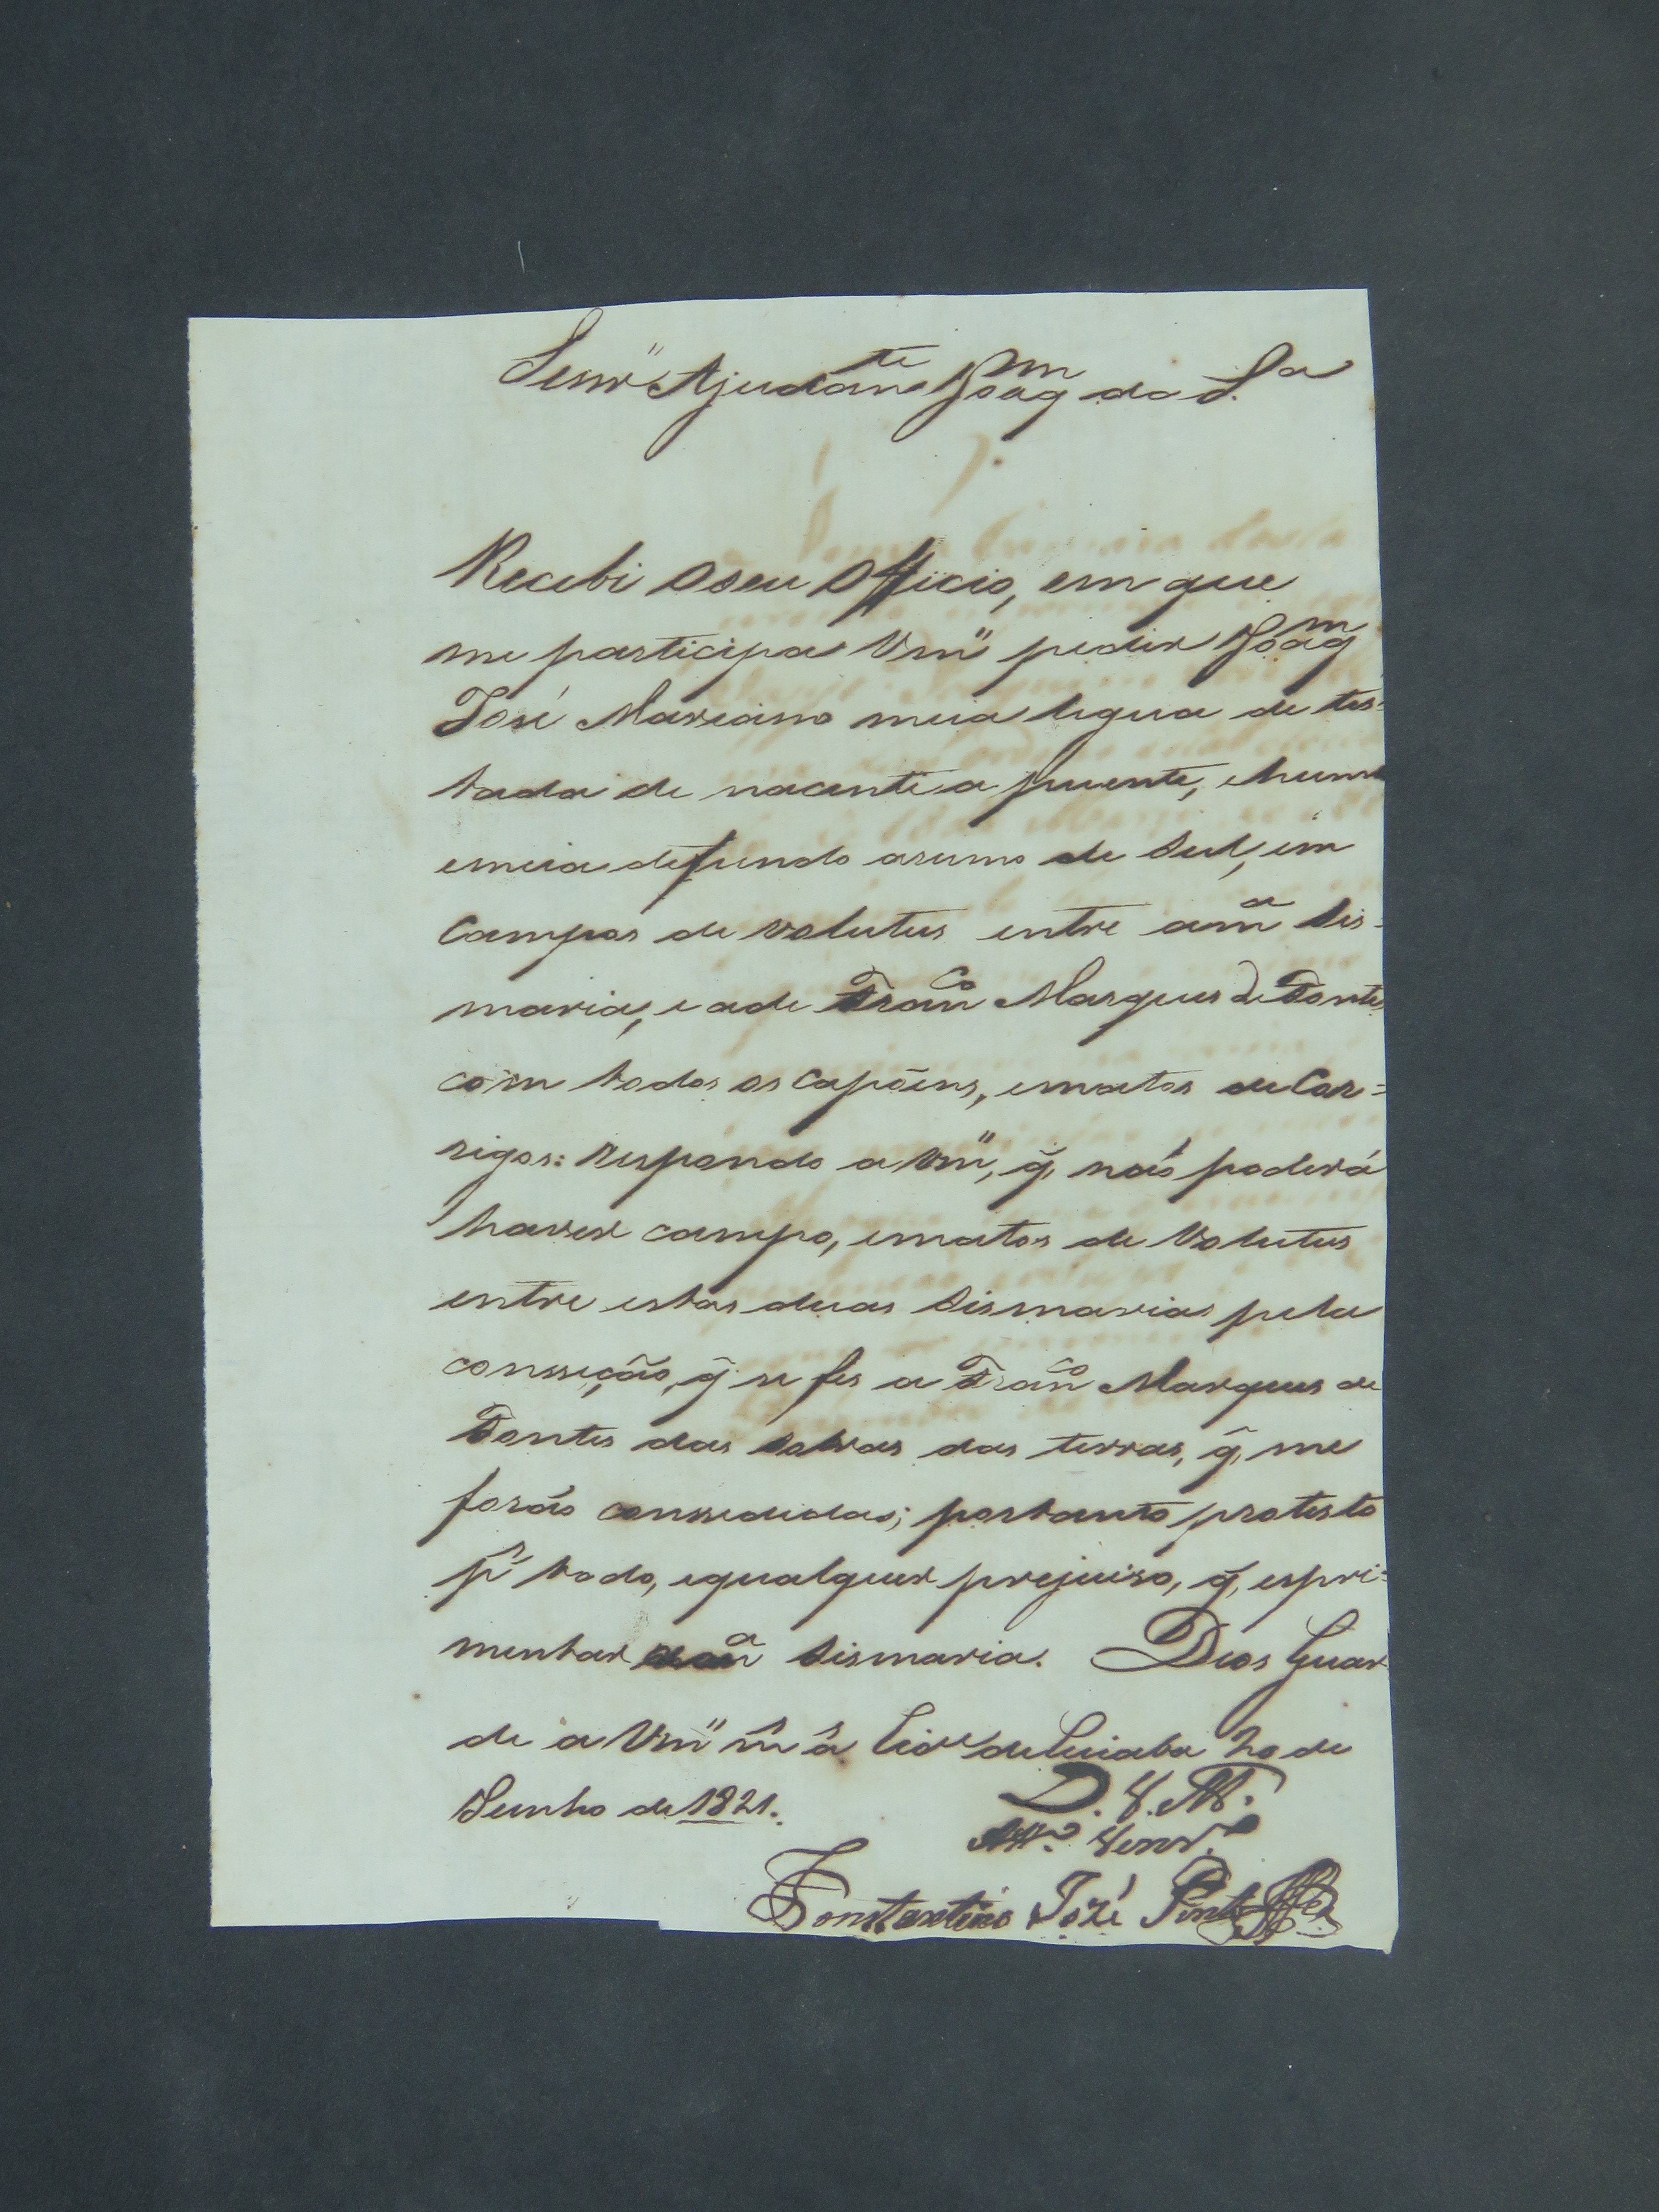 Senr. Ajudante Joaqm da Sa
Recebi o seu Officio, em que
me participa Vmce pedir Joaqm
José Marciano meia legua de tes-
tada de nacente a puente, e huma
e meia de fundo a rumo de Sul, em
Campos de volutus entre a ma Sis-
maria, e a de Franco Marques de Fontes
com todos os capoens, e matos de Cor=
rigos: respondo a Vmce, q̃ naõ poderá
haver campo, e matos de Volutus
entre estas duas Sismarias pela
conseçaõ, q̃ se fes a Franco Marques de
Fontes das sobras das terras, q̃ me
foraõ consedidas; portanto protesto
pr todo, e qualquer prejuiso, q̃, espri-
mentar a ma Sismaria. Deos Guar
de a Vmce ms as Cide de Cuiaba 20 de
Junho de 1821.
D. V. M.
Atto. Venr.
Constantino José Pinto